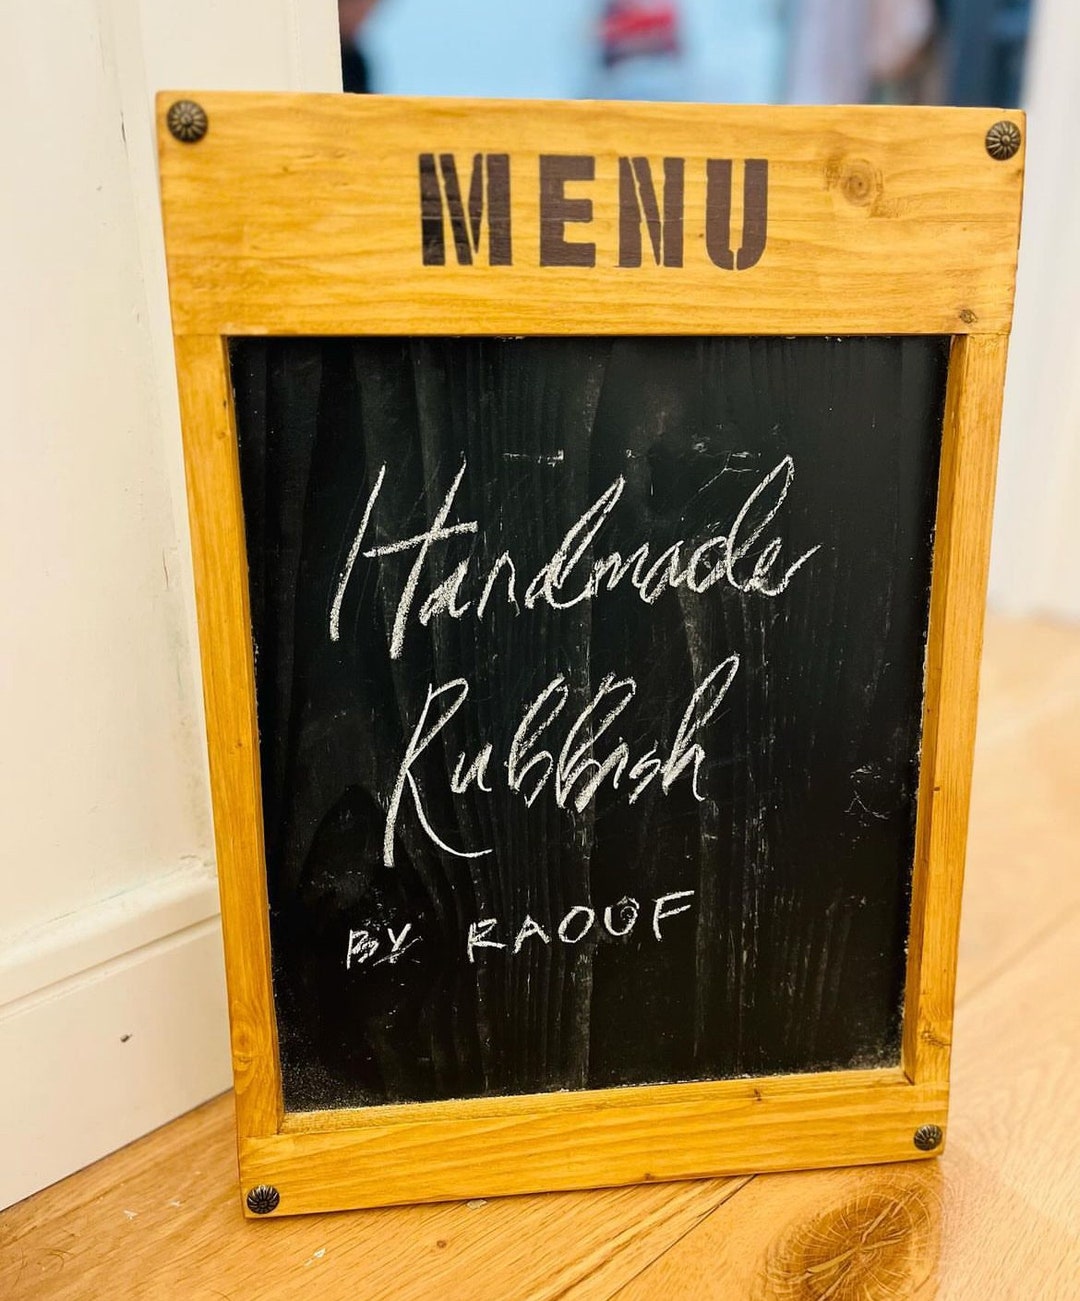 MENU
Handmade
Rubbish
BY RAOUF